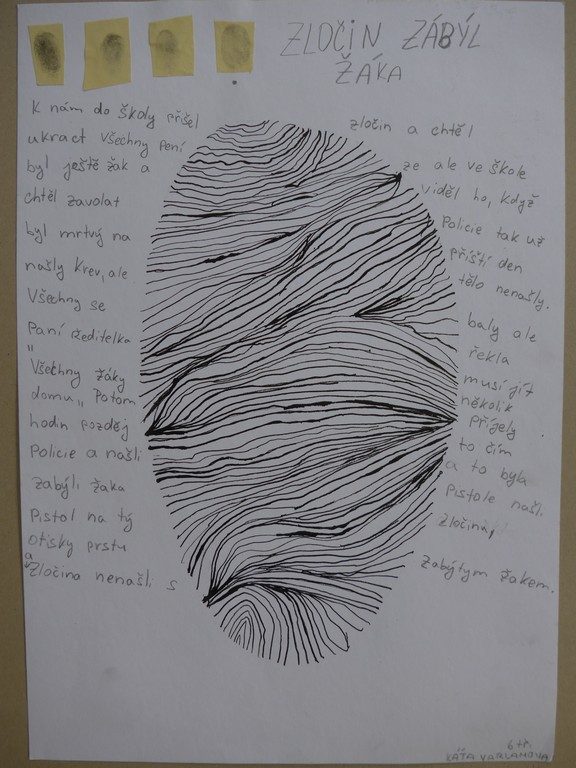 ZLOČIN ZÁBÝL
ŽÁKA
K nám do školy přišel zločin a chtěl
ukract všechny pení ze ale ve škole
byl ještě žák a viděl ho, když
chtěl zavolat Policie tak už
byl mrtvý na příští den
našly krev, ale tělo nenašly.
Všechny se baly ale
Paní ředitelka řekla
"Všechny žáky musí jít
domu" Potom několik
hodin pozděj přijely
Policie a našli to čím
zabýli žaka a to byla
Pistol na tý Pistole našli
otisky prstu zločina,
a Zločina nenašli s zabýtym žakem.
6 tř.
KÁŤA VARLAMOVA